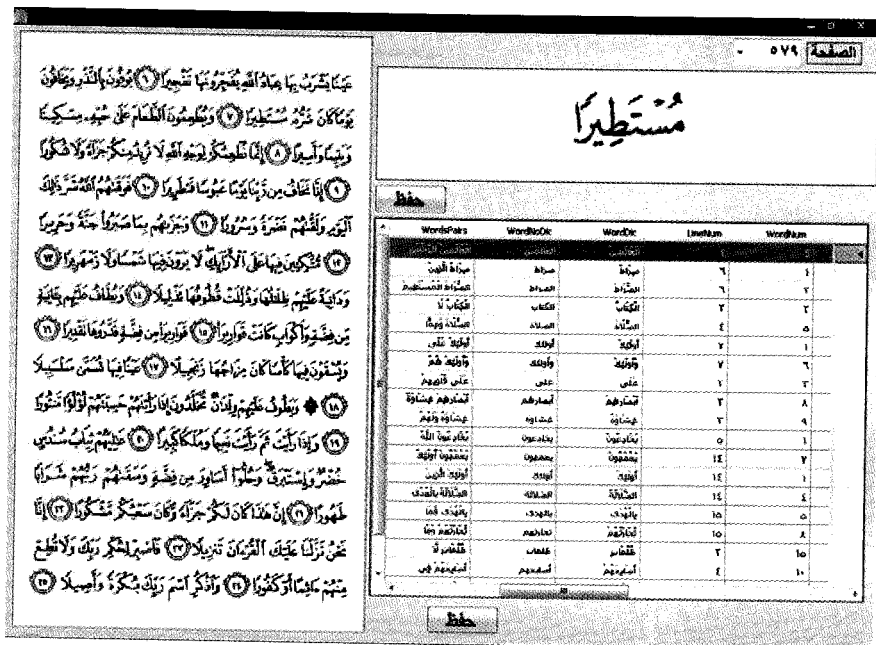 الصفحة ٥٧٩
عَيْنًا يَشْرَبُ بِهَا عِبَادُ ٱللَّهِ يُفَجِّرُونَهَا تَفْجِيرًا ٦ يُوفُونَ بِٱلنَّذْرِ وَيَخَافُونَ
يَوْمًا كَانَ شَرُّهُۥ مُسْتَطِيرًا ٧ وَيُطْعِمُونَ ٱلطَّعَامَ عَلَىٰ حُبِّهِۦ مِسْكِينًا
وَيَتِيمًا وَأَسِيرًا ٨ إِنَّمَا نُطْعِمُكُمْ لِوَجْهِ ٱللَّهِ لَا نُرِيدُ مِنكُمْ جَزَآءً وَلَا شُكُورًا
٩ إِنَّا نَخَافُ مِن رَّبِّنَا يَوْمًا عَبُوسًا قَمْطَرِيرًا ١٠ فَوَقَىٰهُمُ ٱللَّهُ شَرَّ ذَٰلِكَ
ٱلْيَوْمِ وَلَقَّىٰهُمْ نَضْرَةً وَسُرُورًا ١١ وَجَزَىٰهُم بِمَا صَبَرُوا۟ جَنَّةً وَحَرِيرًا
١٢ مُّتَّكِـِٔينَ فِيهَا عَلَى ٱلْأَرَآئِكِ ۖ لَا يَرَوْنَ فِيهَا شَمْسًا وَلَا زَمْهَرِيرًا ١٣
وَدَانِيَةً عَلَيْهِمْ ظِلَٰلُهَا وَذُلِّلَتْ قُطُوفُهَا تَذْلِيلًا ١٤ وَيُطَافُ عَلَيْهِم بِـَٔانِيَةٍ
مِّن فِضَّةٍ وَأَكْوَابٍ كَانَتْ قَوَارِيرَا۠ ١٥ قَوَارِيرَا۟ مِن فِضَّةٍ قَدَّرُوهَا تَقْدِيرًا ١٦
وَيُسْقَوْنَ فِيهَا كَأْسًا كَانَ مِزَاجُهَا زَنجَبِيلًا ١٧ عَيْنًا فِيهَا تُسَمَّىٰ سَلْسَبِيلًا
١٨ ۞ وَيَطُوفُ عَلَيْهِمْ وِلْدَٰنٌ مُّخَلَّدُونَ إِذَا رَأَيْتَهُمْ حَسِبْتَهُمْ لُؤْلُؤًا مَّنثُورًا
١٩ وَإِذَا رَأَيْتَ ثَمَّ رَأَيْتَ نَعِيمًا وَمُلْكًا كَبِيرًا ٢٠ عَٰلِيَهُمْ ثِيَابُ سُندُسٍ
خُضْرٌ وَإِسْتَبْرَقٌ ۖ وَحُلُّوٓا۟ أَسَاوِرَ مِن فِضَّةٍ وَسَقَىٰهُمْ رَبُّهُمْ شَرَابًا
طَهُورًا ٢١ إِنَّ هَٰذَا كَانَ لَكُمْ جَزَآءً وَكَانَ سَعْيُكُم مَّشْكُورًا ٢٢ إِنَّا
نَحْنُ نَزَّلْنَا عَلَيْكَ ٱلْقُرْءَانَ تَنزِيلًا ٢٣ فَٱصْبِرْ لِحُكْمِ رَبِّكَ وَلَا تُطِعْ
مِنْهُمْ ءَاثِمًا أَوْ كَفُورًا ٢٤ وَٱذْكُرِ ٱسْمَ رَبِّكَ بُكْرَةً وَأَصِيلًا ٢٥
مُسْتَطِيرًا
حفظ
WordsPairs WordNoDic WordDic LineNum WordNum
صِرَاطَ الَّذِينَ صراط صِرَاطَ ٦ ٤
الصِّرَاطَ الْمُسْتَقِيمَ الصراط الصِّرَاطَ ٦ ٢
الْكِتَابُ لَا الكتاب الْكِتَابُ ٢ ٢
الصَّلَاةَ وَمِمَّا الصلاة الصَّلَاةَ ٤ ٥
أُولَئِكَ عَلَى أولئك أُولَئِكَ ٧ ١
وَأُولَئِكَ هُمُ وأولئك وَأُولَئِكَ ٧ ٦
عَلَى قُلُوبِهِمْ على عَلَى ٢ ٣
أَبْصَارِهِمْ غِشَاوَةٌ أبصارهم أَبْصَارِهِمْ ٣ ٨
غِشَاوَةٌ وَلَهُمْ غشاوة غِشَاوَةٌ ٣ ٩
يُخَادِعُونَ اللَّهَ يخادعون يُخَادِعُونَ ٥ ١
يَعْمَهُونَ أُولَئِكَ يعمهون يَعْمَهُونَ ١٤ ٧
أُولَئِكَ الَّذِينَ أولئك أُولَئِكَ ١٤ ١
الضَّلَالَةَ بِالْهُدَى الضلالة الضَّلَالَةَ ١٤ ٤
بِالْهُدَى فَمَا بالهدى بِالْهُدَى ١٥ ٥
تِجَارَتُهُمْ وَمَا تجارتهم تِجَارَتُهُمْ ١٥ ٨
ظُلُمَاتٍ لَا ظلمات ظُلُمَاتٍ ٢ ١٥
أَصَابِعَهُمْ فِي أصابعهم أَصَابِعَهُمْ ٤ ١٠
حفظ